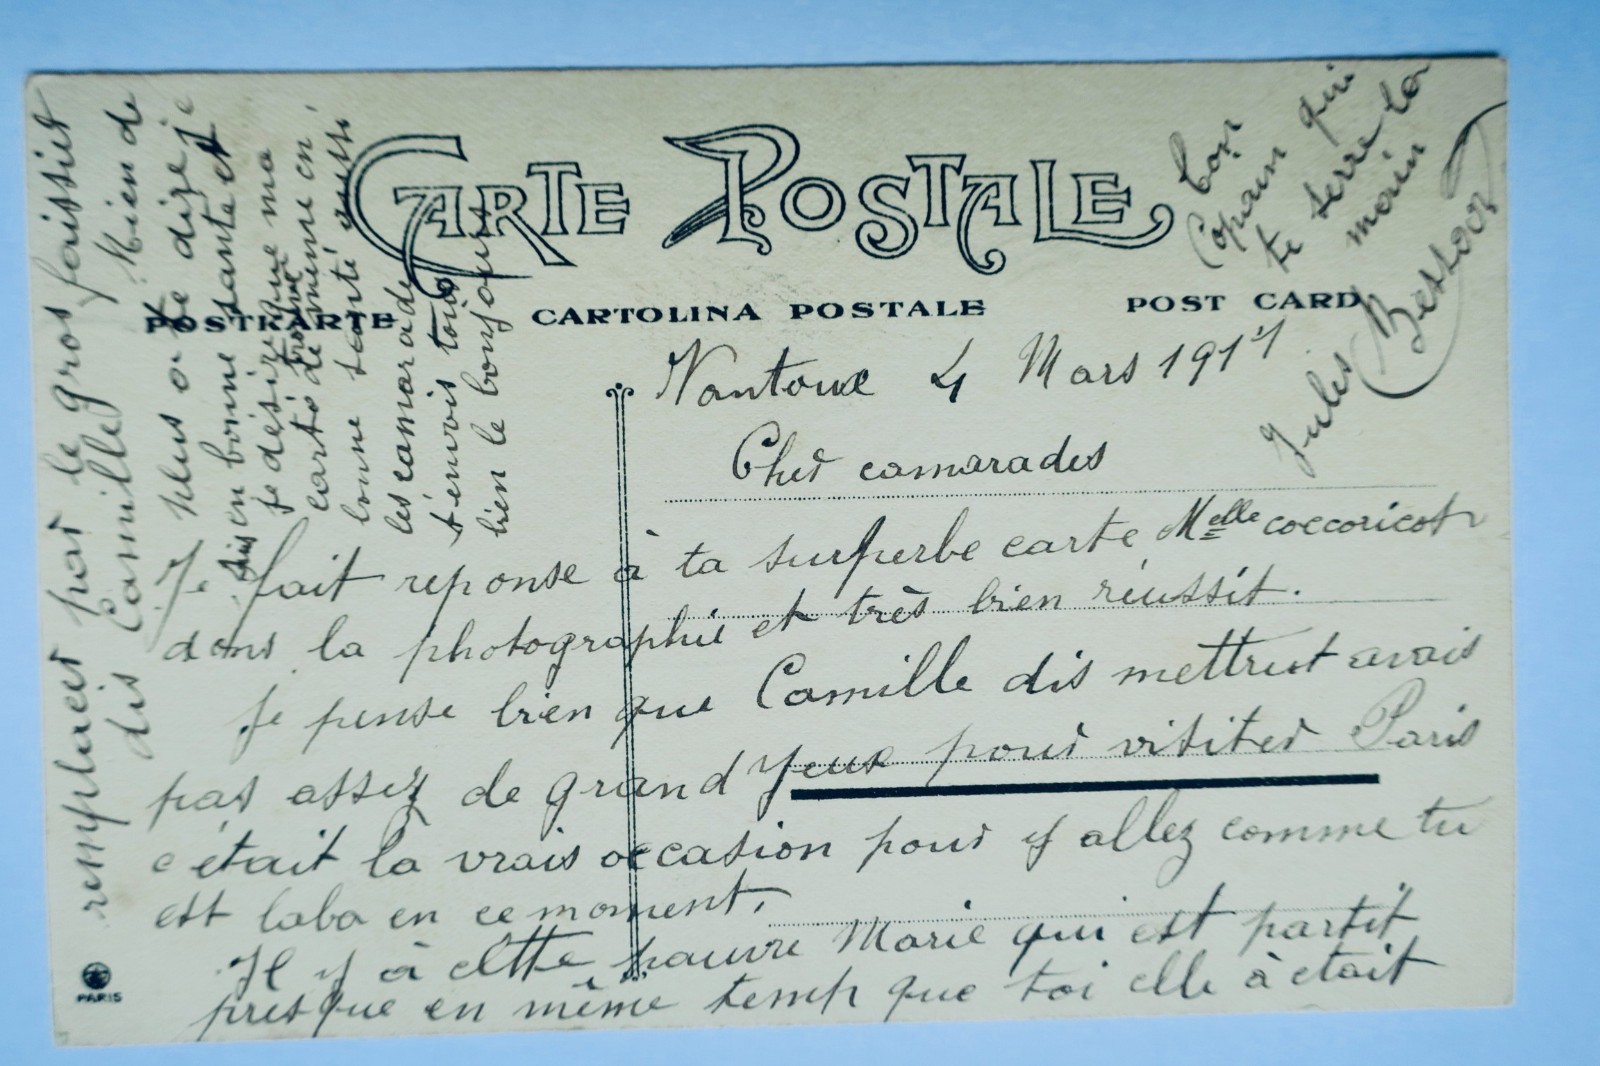 CARTE POSTALE
POSTKARTE CARTOLINA POSTALE POST CARD
Nantoux 4 Mars 1911
Cher camarades
Je fait reponse à ta surperbe carte Melle coccoricot
dans la photographie et très bien réussit.
je pense bien que Camille dis mettrest avais
pas assez de grand yeux pour visiter Paris
c'était la vrais occasion pour y allez comme tu
est laba en ce moment.
Il y à cette pauvre Marie qui est partit
presque en même temp que toi elle à etait
remplacer par le gros faissier
dis Camille. Rien de
plus a te dire je
suis en bonne santante et
je désire que ma
carte te trouve de même en
bonne santé aussi
les camarade
t'envois tous
bien le bonjour
ton
Copain qui
te serre la
main
Jules Bessoor
PARIS